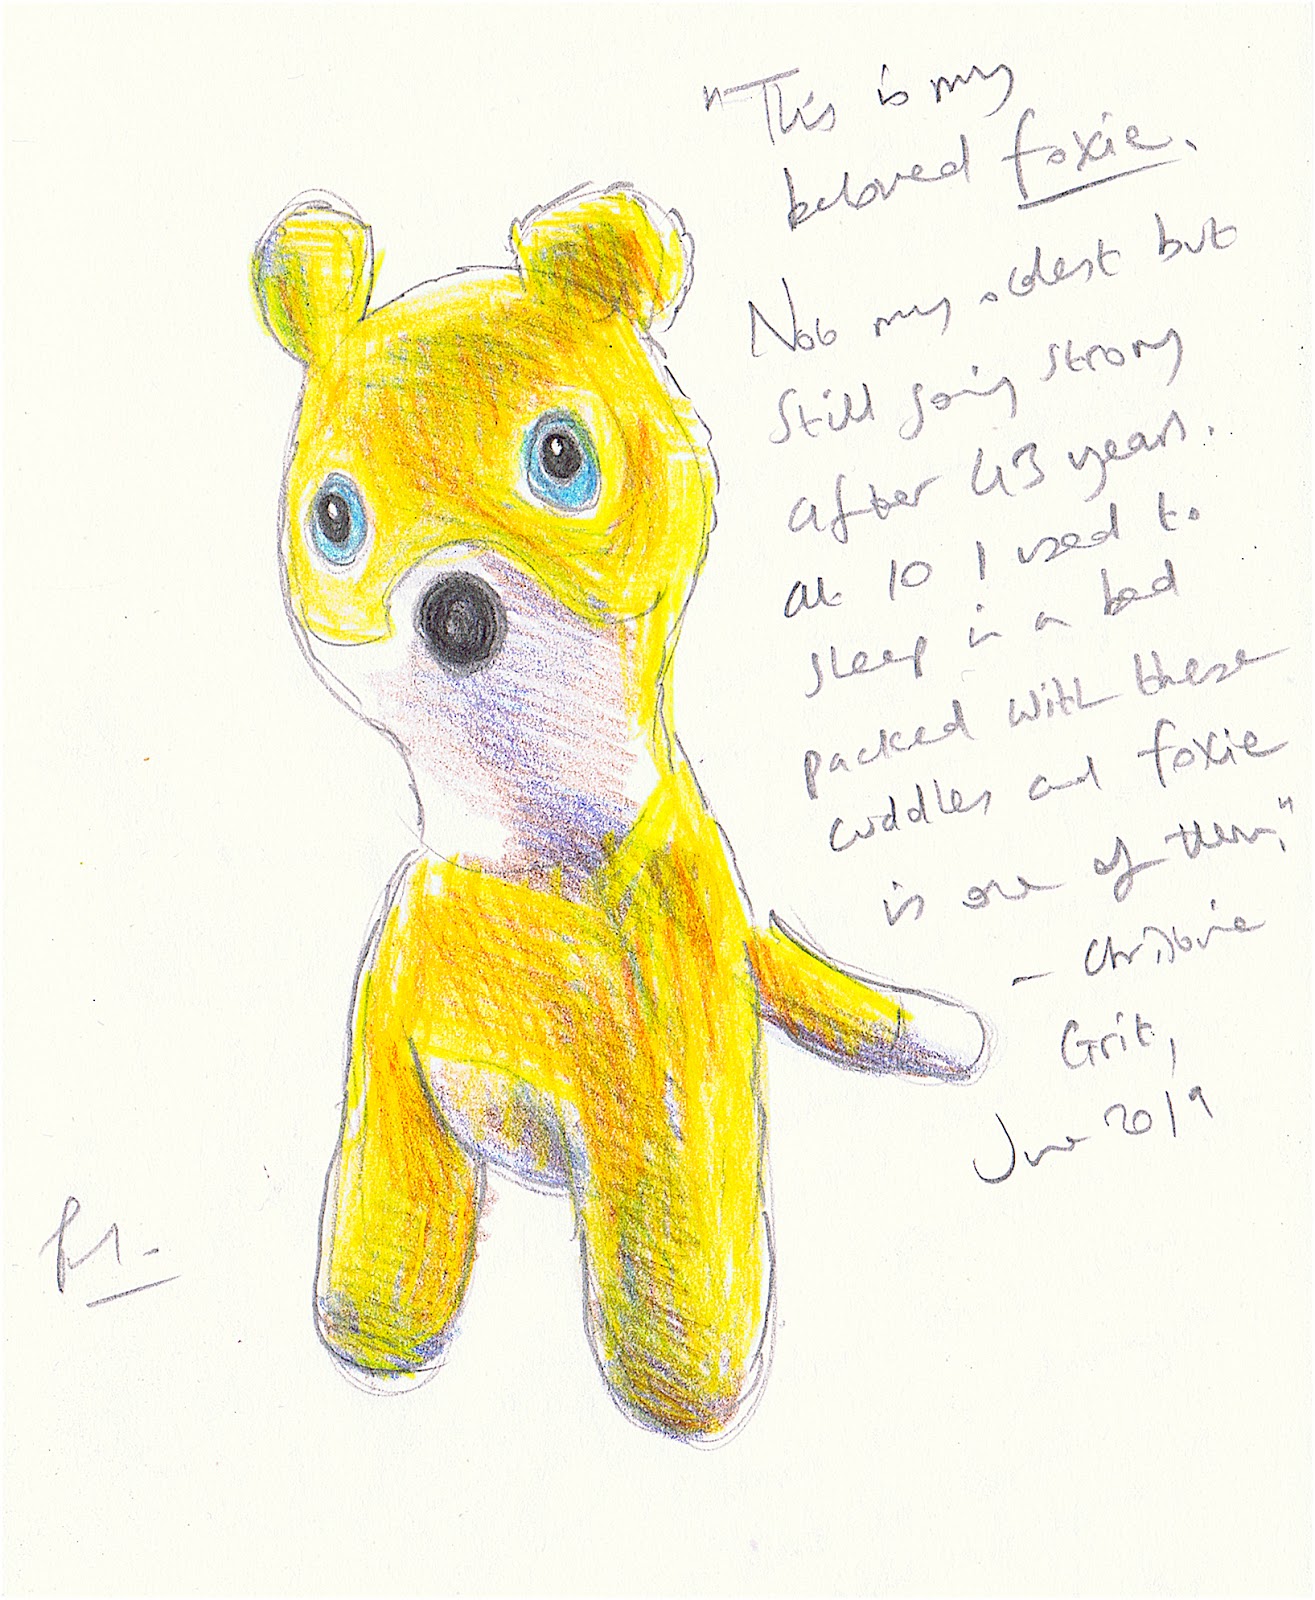 "This is my
beloved foxie.
Not my oldest but
still going strong
after 43 years.
At 10 I used to
sleep in a bed
packed with these
cuddles and foxie
is one of them,"
- Christine
Grit,
June 2019